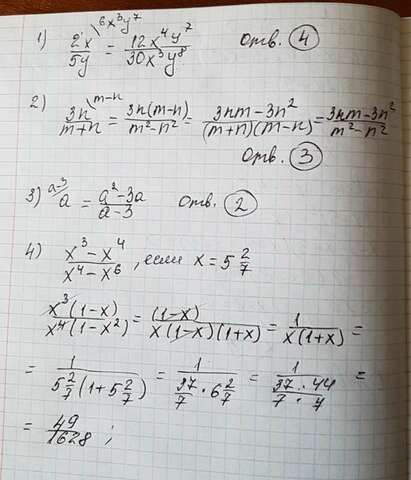 1) 2x/5y \6x³y⁷ = 12x⁴y⁷/30x³y⁸ Отв. ④
2) 3n/m+n \m-n = 3n(m-n)/m²-n² = 3nm-3n²/(m+n)(m-n) = 3nm-3n²/m²-n²
Отв. ③
3) a-3/ a = a²-3a/a-3 Отв. ②
4) x³-x⁴/x⁴-x⁶, если x = 5 2/7
x³(1-x)/x⁴(1-x²) = (1-x)/x(1-x)(1+x) = 1/x(1+x) =
= 1/5 2/7(1+5 2/7) = 1/37/7 · 6 2/7 = 1/37/7 · 44/7 =
= 49/1628;